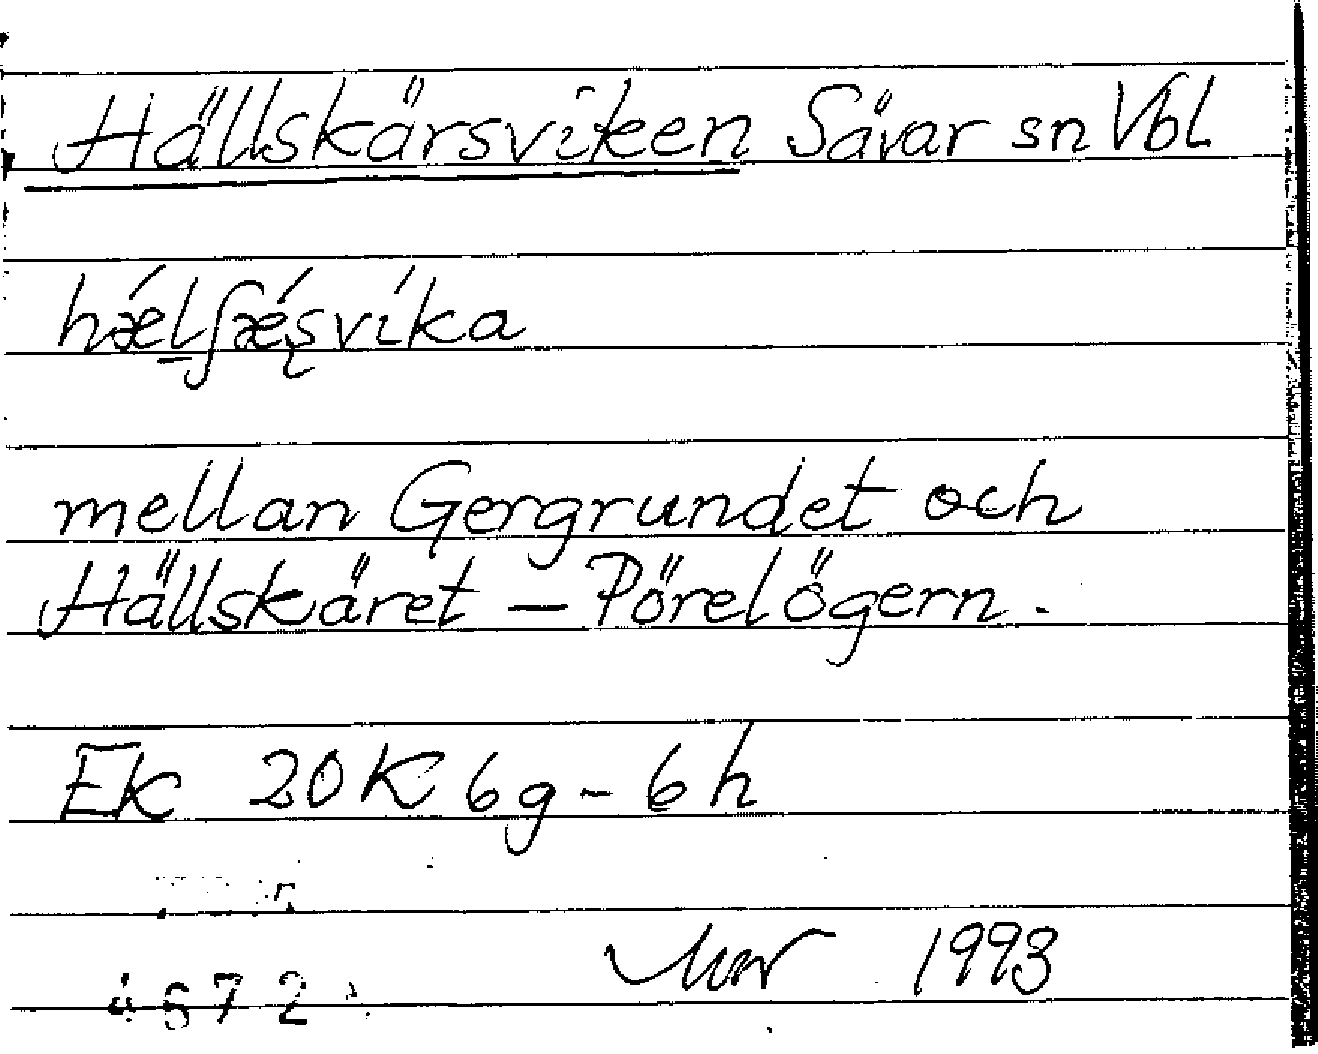 Hällskärsviken Sävar sn Vbl
hǽl̲ʃǽʂvíka
mellan Gergrundet och
Hällskäret – Pörelögern.
EK 20K 6g - 6h
1993
4572